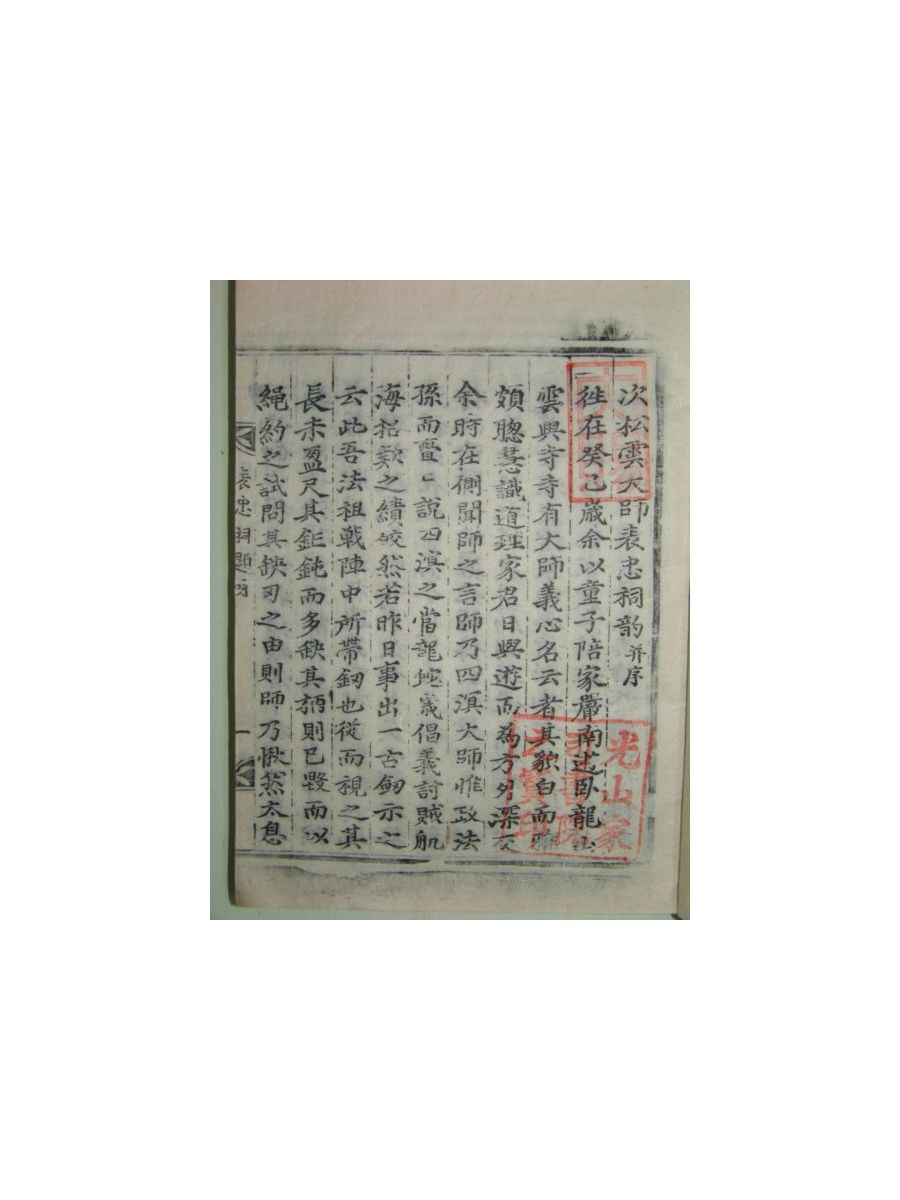 次松雲大師表忠祠韵并序
徃在癸巳歲余以童子陪家嚴南遊臥龍山
雲興寺寺有大師義心名云者其貌白而
頗聰慧識道理家君日與遊而為方外深交
余時在側聞師之言師乃四溟大師惟政法
孫而亹〻說四溟之當龍蛇歲倡義討賊航
海招欵之績皎然若昨日事出一古劒示之
云此吾法祖戦陣中所帶釰也従而視之其
長未盈尺其鉅鈍而多缺其柄則已毀而以
繩約之試問其缺刃之由則師乃愀然太息
表忠祠題
一
光山家
書院
之寶